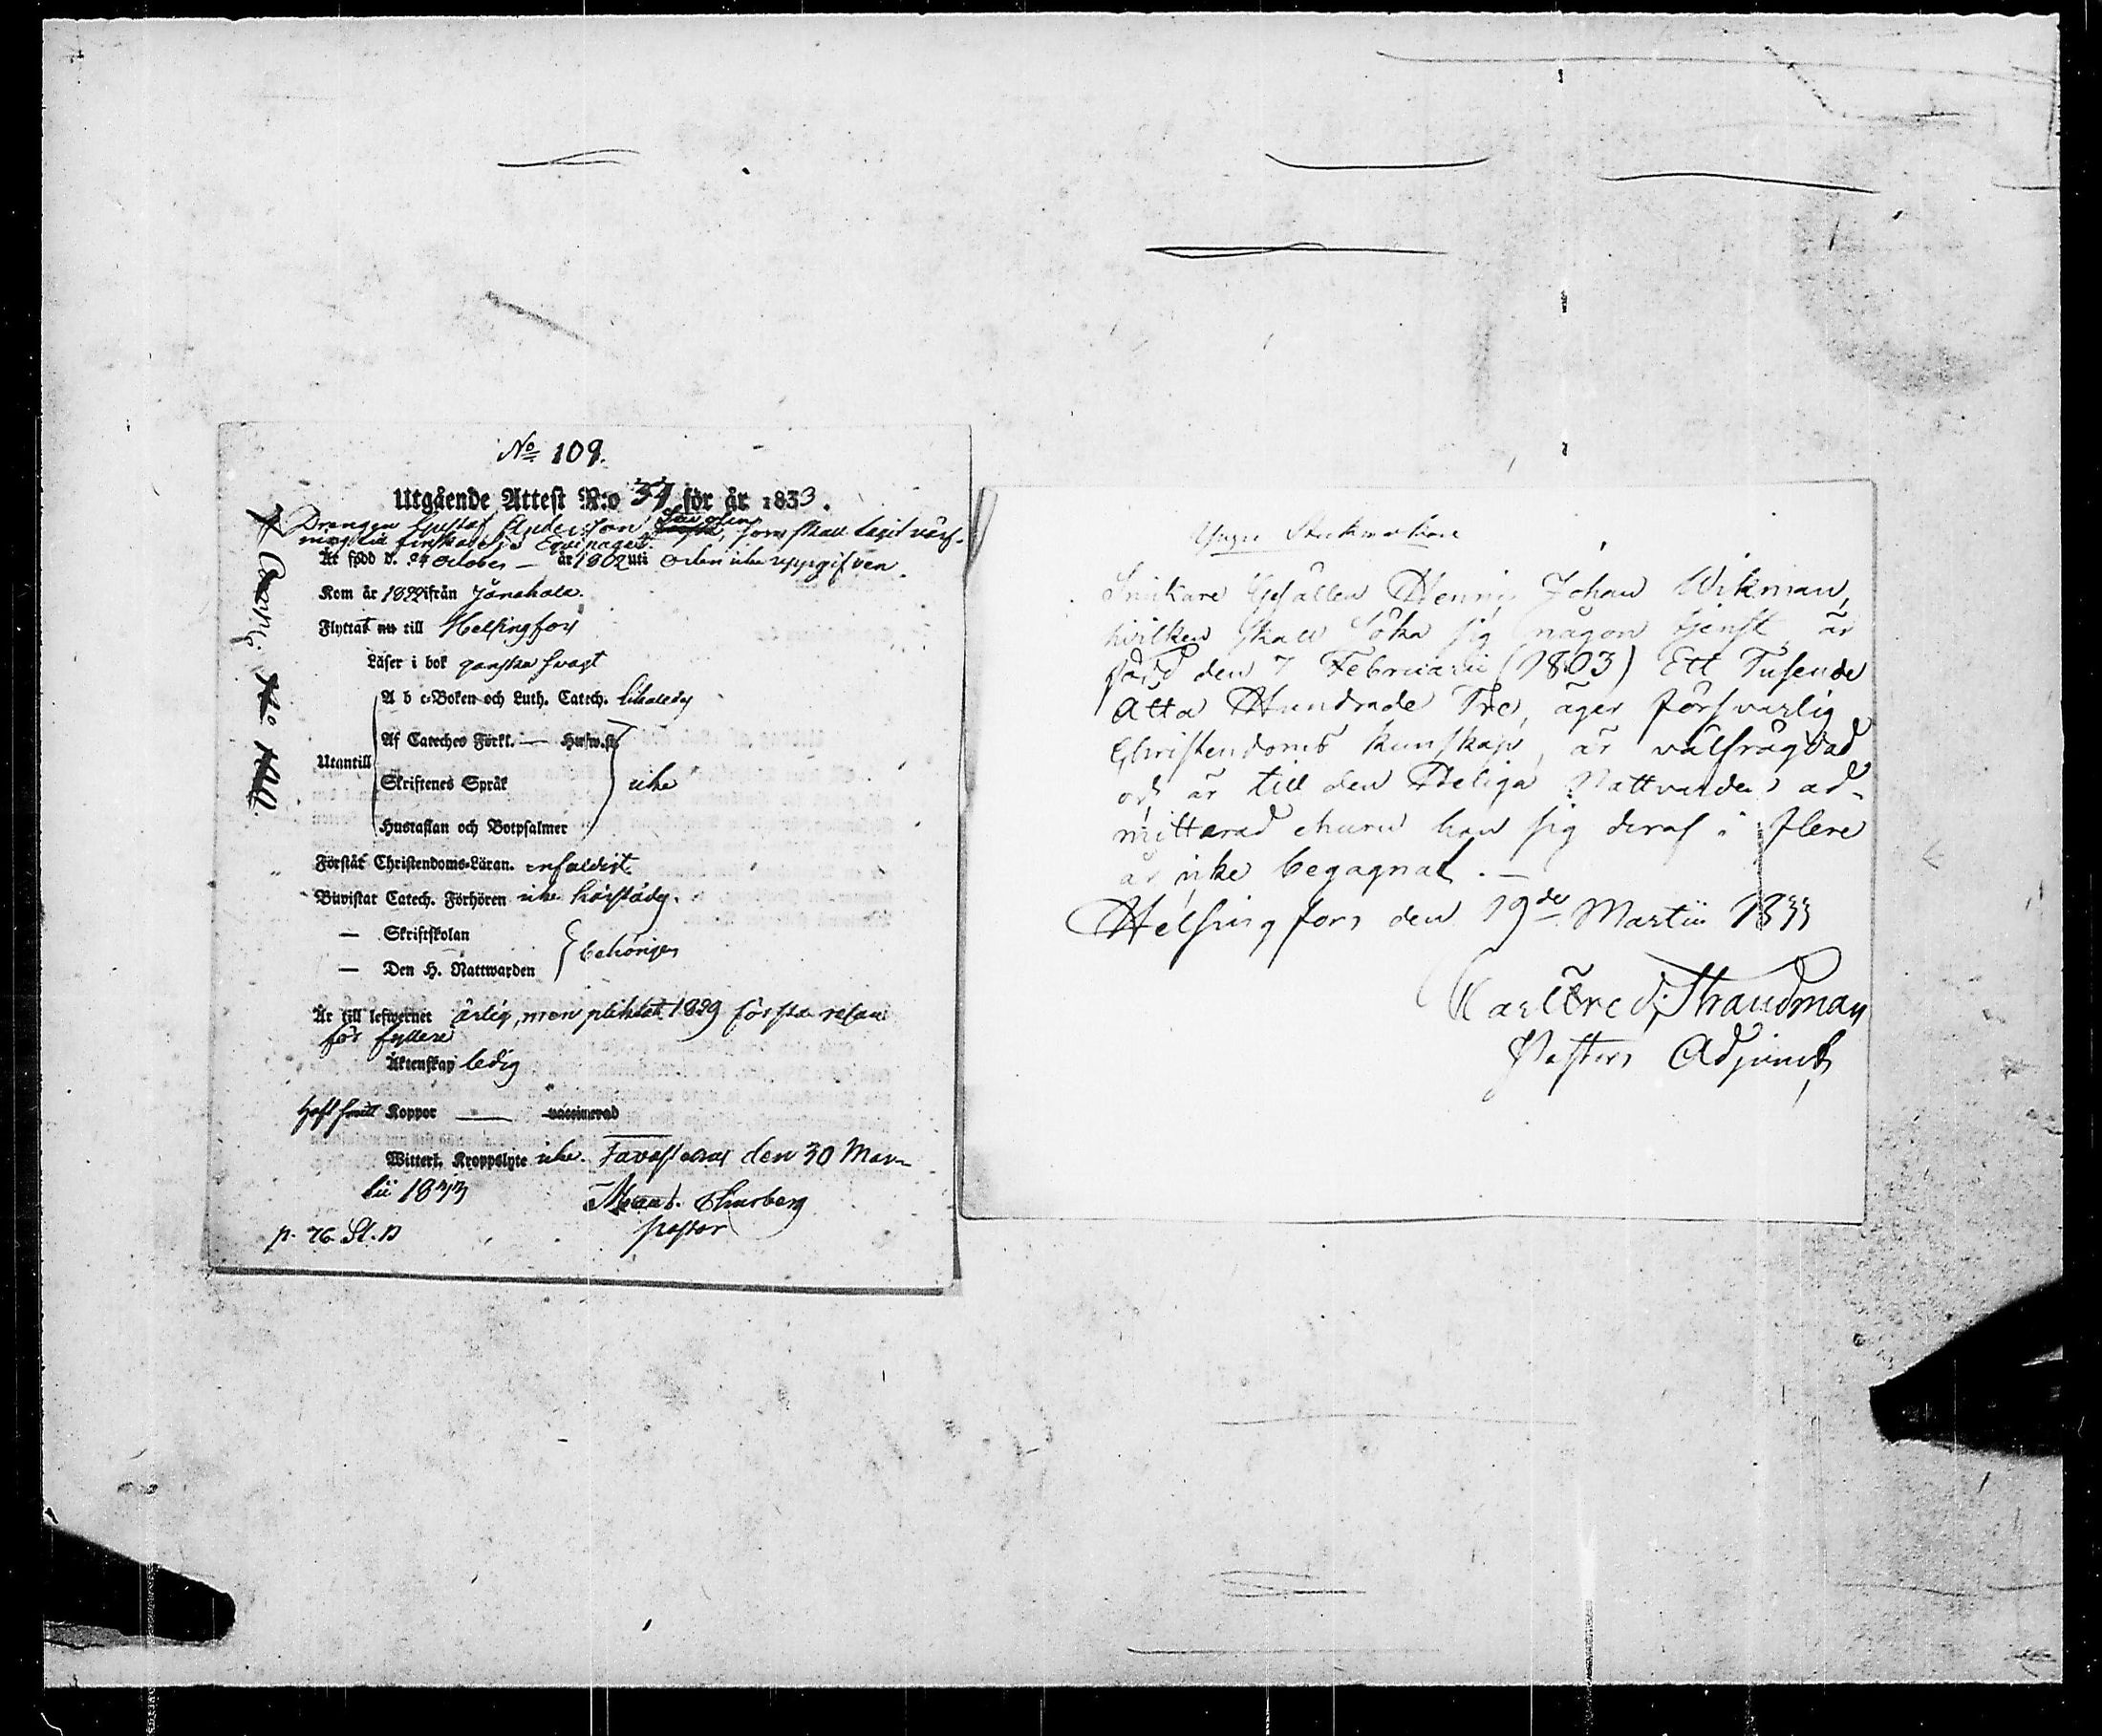 No 109.
Utgående Attest N:o 34 för år 1833.
Drengen Gustaf Andersson som skall tagit värf-
ning till finska Equipaget.
Är född d. 24 October — år 1802 uti orten icke uppgifven.
Kom år 1822 ifrån Janakala.
Flyttat nu till Helsingfors
Läser i bok ganska svagt
Utantill
A b c-Boken och Luth. Catech. likaledes
Af Catechos Förkl. — Husw.st.
Skriftenes Språk icke
Hustaflan och Botpsalmer
Förstår Christendoms-Läran. enfaldigt.
Biwistat Catech. Förhören icke härstädes.
— Skriftskolan
— Den H. Nattwarden behörigen
Är till lefwernet ärlig, men pliktat 1829 första resan
för fylleri
Äktenskap ledig
Haft smitt Koppor — vaccinerad
Witterl. Kroppslyte icke. Tavastehus den 30 Mar-
tii 1833
Pastor
p. 76. St. D
Yngre
Snickare Gesällen Henric Johan Wikman,
hvilken skall söka sig någon tjenst, är
född den 7 Februarii (1803) Ett Tusende
Åtta Hundrade Tre, äger försvarlig
Christendoms kunskap, är välfrägdad
och är till den Heliga Nattvarden ad-
mitterad ehuru han sig deraf i flere
år icke begagnat. —
Helsingfors den 19de Martii 1833
Carl Fred. Strandman
Pastors Adjunct